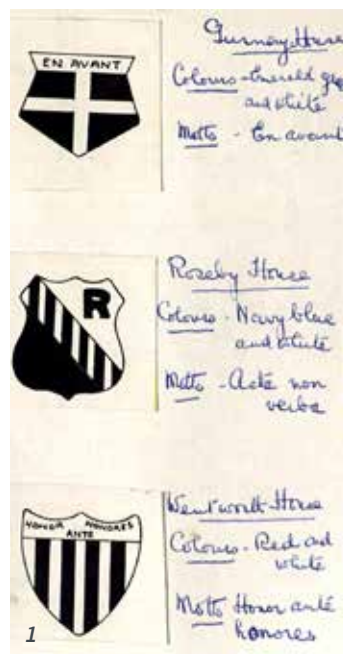 EN AVANT
Gurney House
Colours - Emerald gre
and white
Motto - En avant
R
Roseby House
Colours - Navy blue
and white
Motto - Acta non
verba
HONOR ANTE HONORES
Wentworth House
Colours - Red and
white
Motto Honor ante
honores
1